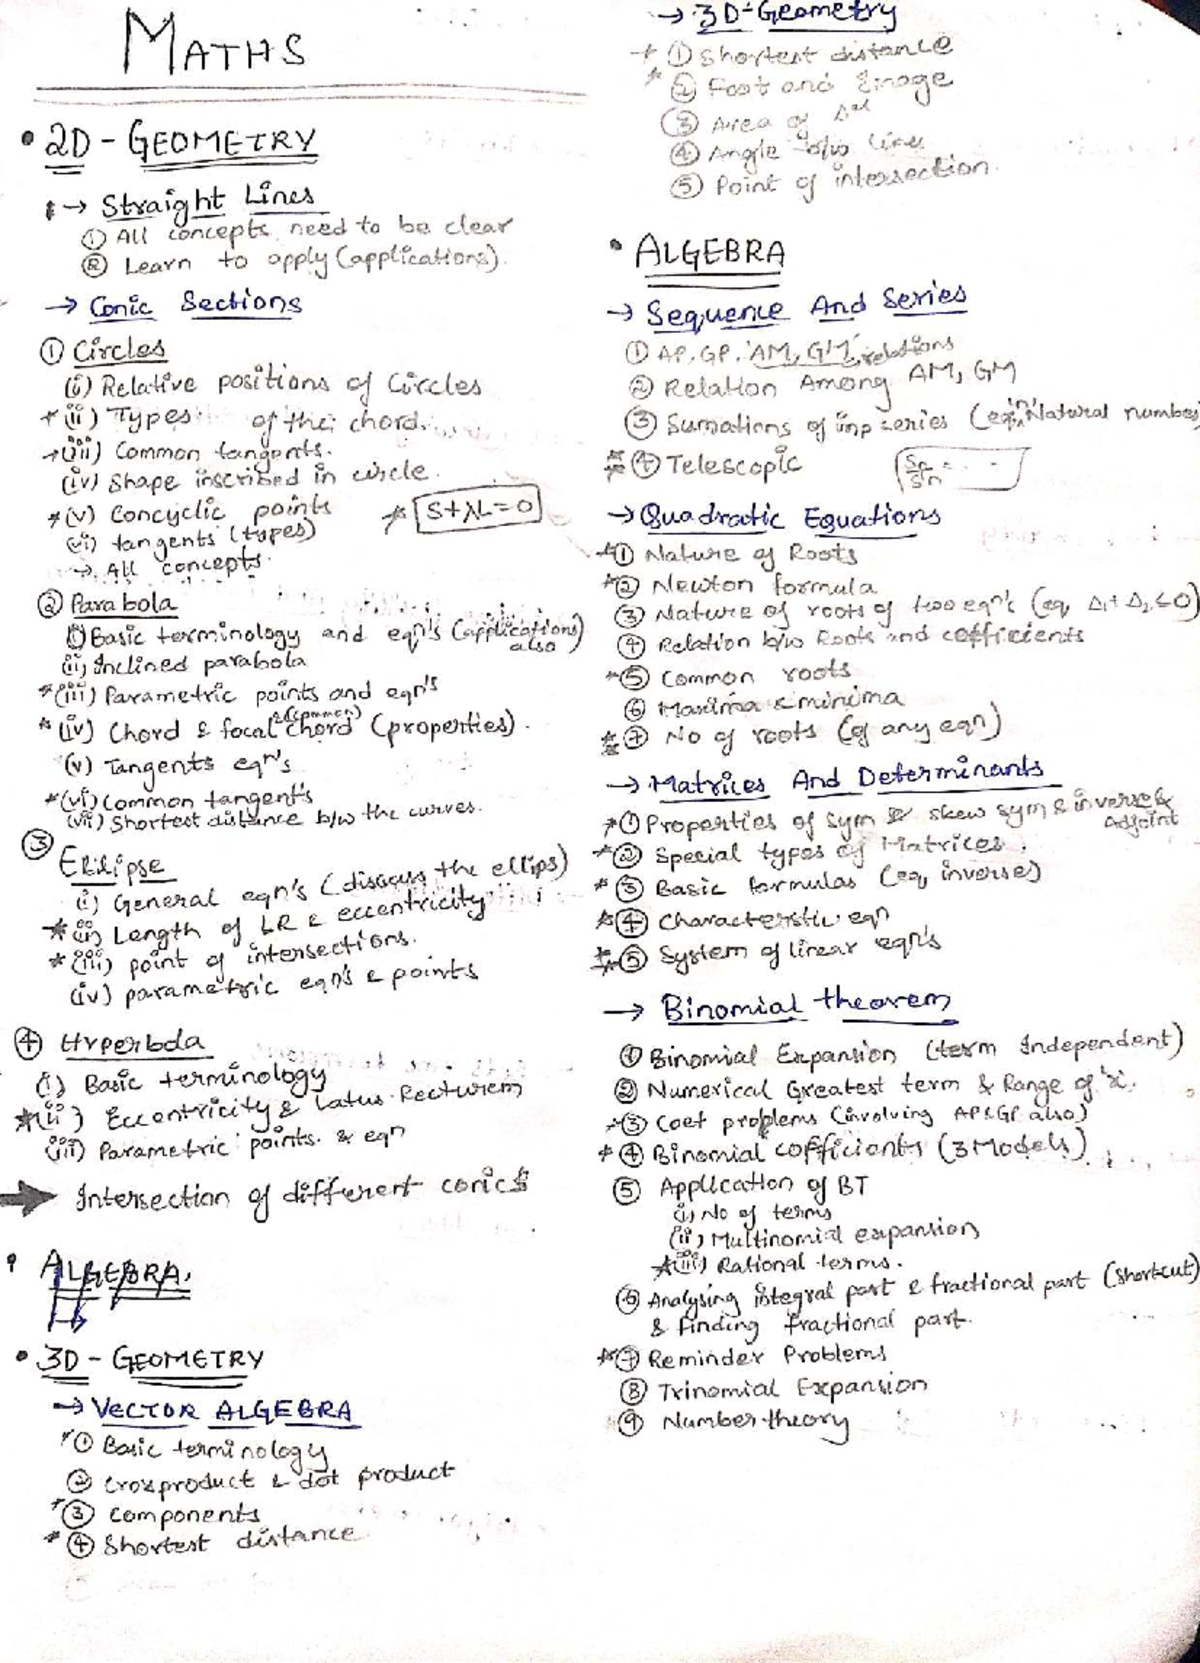 MATHS
• 2D - GEOMETRY
→ Straight Lines
① All concepts need to be clear
② Learn to apply (applications).
→ Conic Sections
① Circles
(i) Relative positions of Circles
* (ii) Types of their chord.
→ (iii) Common tangents.
(iv) Shape inscribed in circle.
* (v) Concyclic points * S+λL=0
(vi) tangents (types)
→ All concepts.
② Parabola
(i) Basic terminology and eqn's (applications) also
(ii) Inclined parabola
* (iii) Parametric points and eqn's
* (iv) Chord & focal chord (properties).
(v) Tangents eqn's
* (vi) Common tangent's
(vii) Shortest distance b/w the curves.
③ Ellipse
(i) General eqn's (discuss the ellips)
* (ii) Length of LR & eccentricity
* (iii) point of intersections.
(iv) parametric eqn's & points
④ Hyperbola
(i) Basic terminology
* (ii) Eccentricity & Latus Recturem
(iii) Parametric points & eqn
→ Intersection of different conics
• ALGEBRA.
• 3D - GEOMETRY
→ VECTOR ALGEBRA
* ① Basic terminology
② crossproduct & dot product
* ③ components
* ④ Shortest distance
→ 3D-Geometry
* ① Shortest distance
* ② Foot and Image
③ Area of Δel
④ Angle b/w line
⑤ Point of intersection.
• ALGEBRA
→ Sequence And Series
① AP, GP, AM, GM relations
② Relation Among AM, GM
③ Sumations of imp series (eqn in Natural number
* ④ Telescopic
→ Quadratic Equations
* ① Nature of Roots
* ② Newton formula
③ Nature of roots of two eqn's (eq, Δ₁+Δ₂≤0)
④ Relation b/w Roots and cofficients
* ⑤ Common roots
⑥ Maxima & minima
* ⑦ No of roots (of any eqn)
→ Matrices And Determinants
* ① Properties of sym & skew sym & inverse & Adjoint
* ② Special types of Matrices.
* ③ Basic formulas (eq, inverse)
* ④ Characteristic eqn
* ⑤ System of linear eqn's
→ Binomial theorem
① Binomial Expansion (term Independent)
② Numerical Greatest term & Range of 'x'.
* ③ Coef problems (involving AP & GP also)
* ④ Binomial cofficients (3 Models)
⑤ Application of BT
(i) No of terms
(ii) Multinomial expansion
* (iii) Rational terms.
⑥ Analysing integral part & fractional part (Shortcut)
& finding fractional part.
* ⑦ Reminder Problems
⑧ Trinomial Expansion
⑨ Number theory